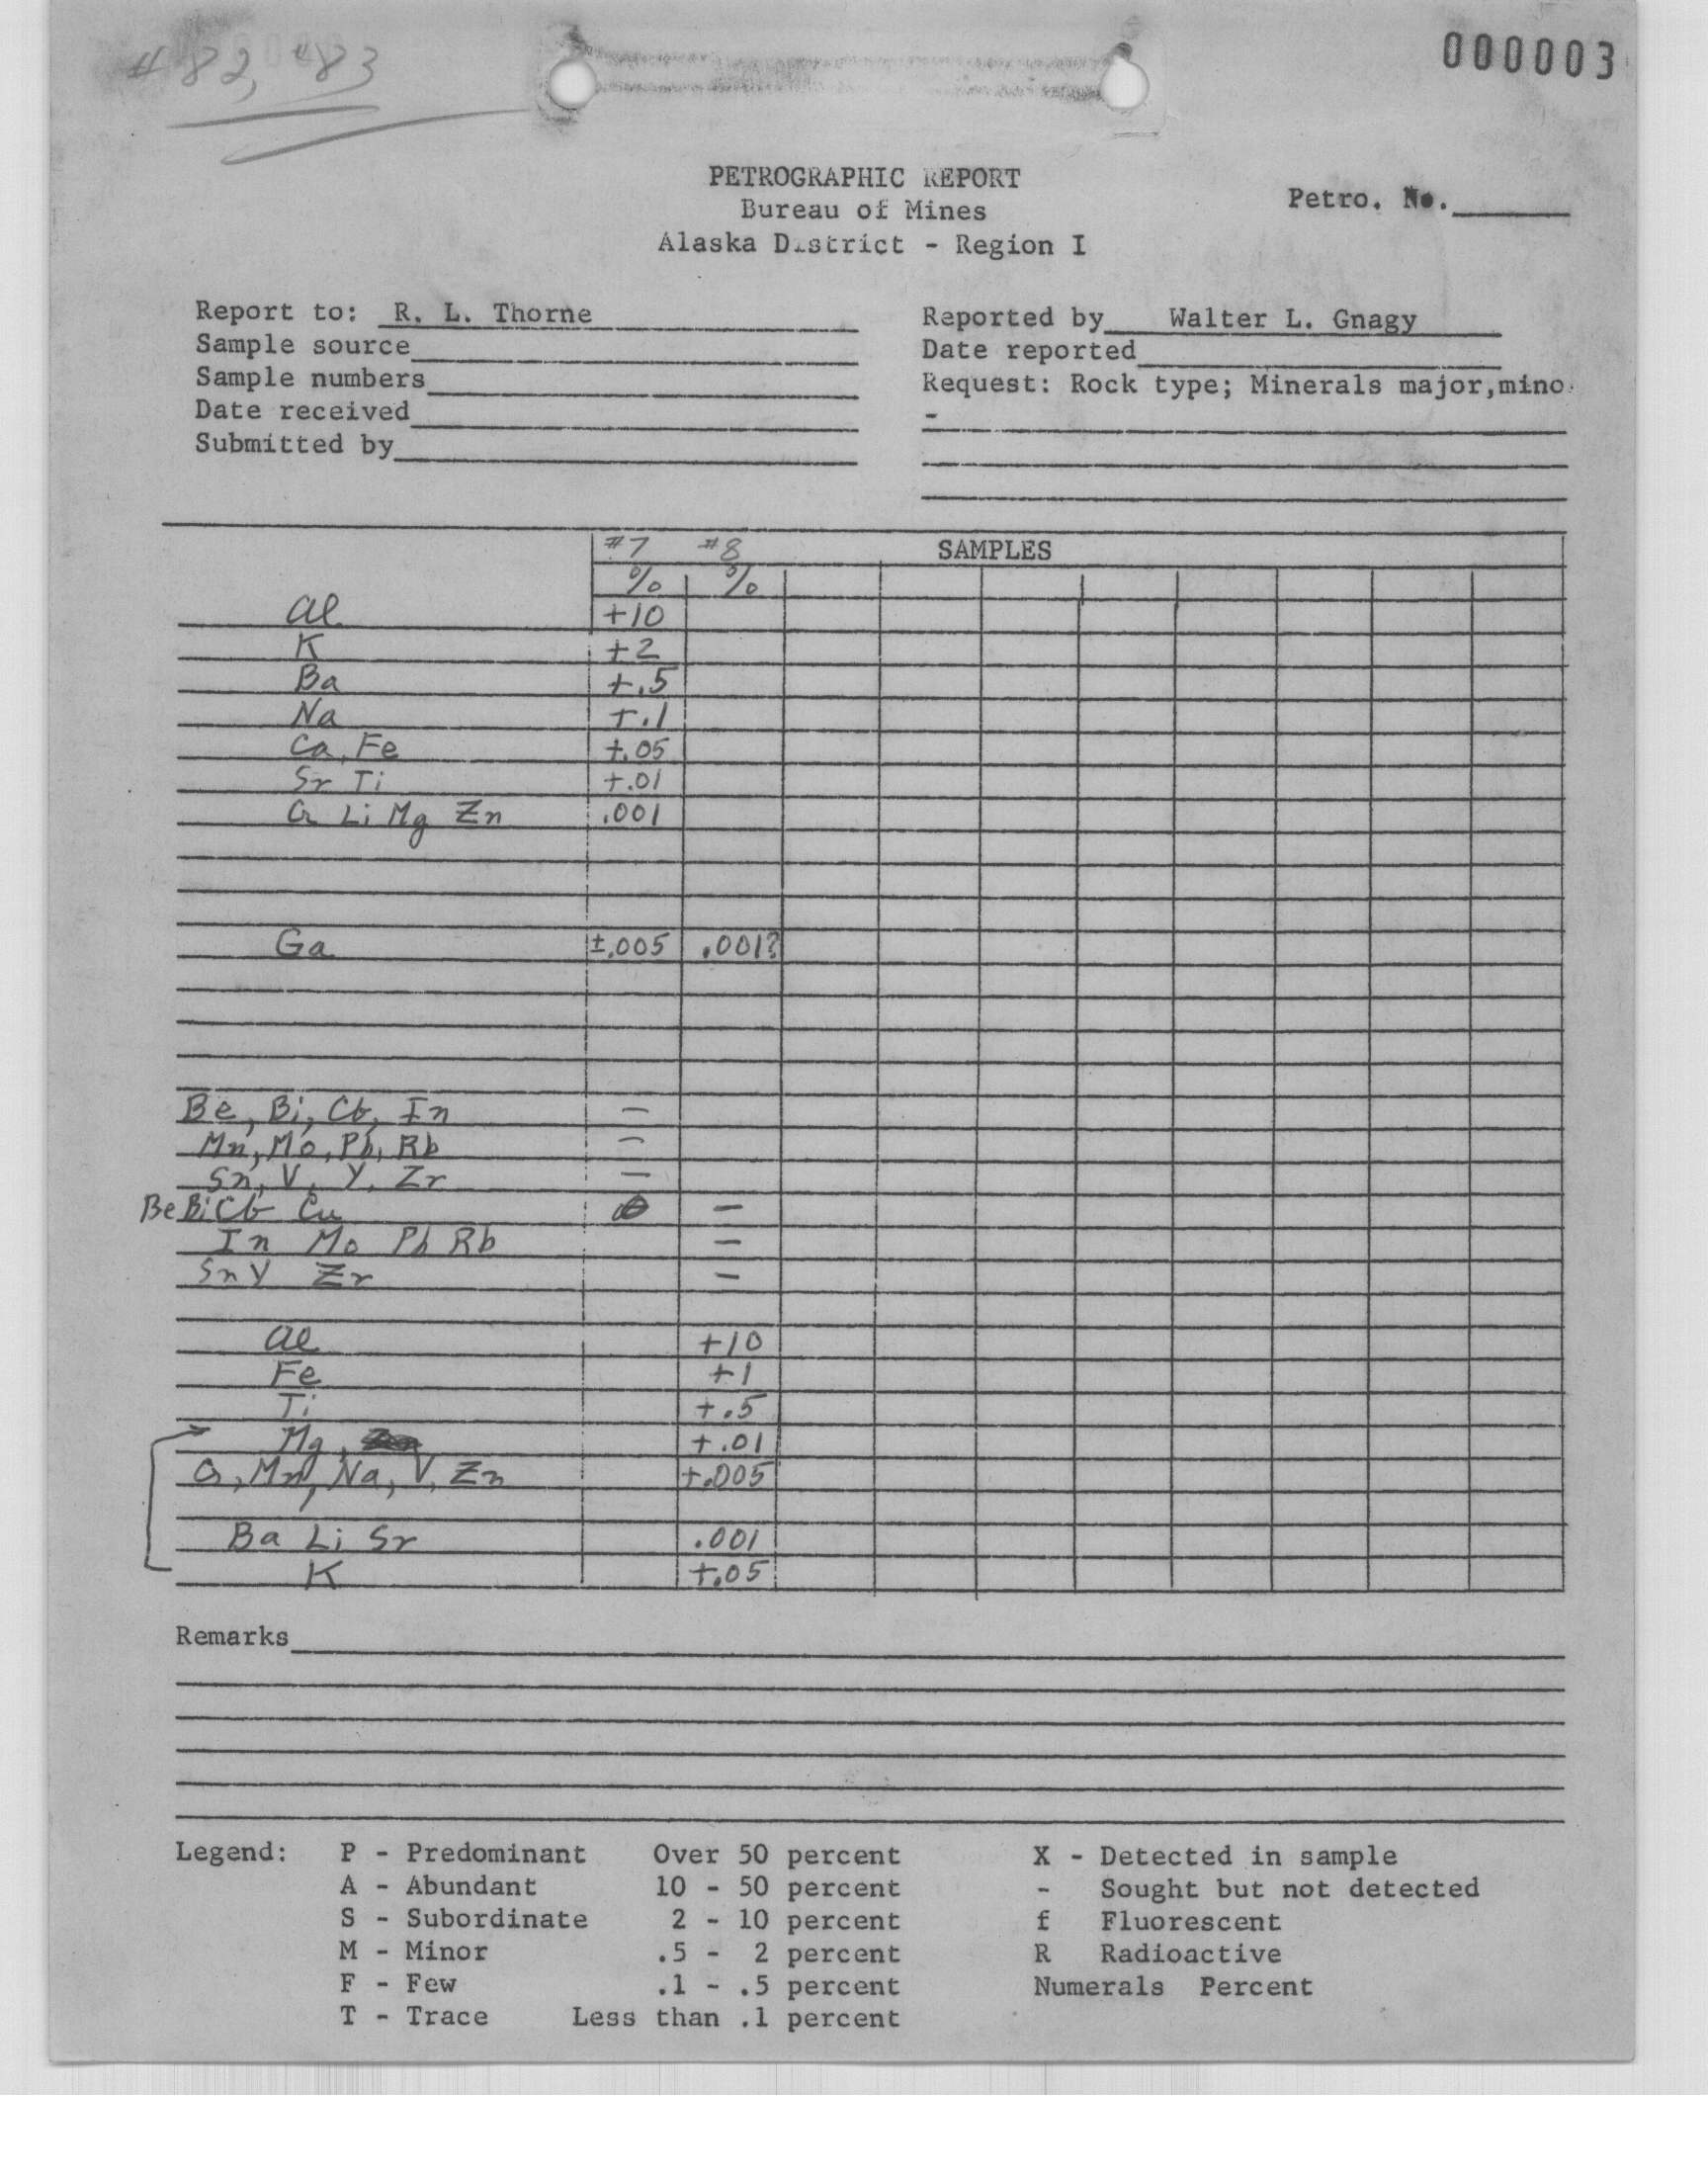 #82, #83
000003
PETROGRAPHIC REPORT
Bureau of Mines
Alaska District - Region I
Petro. No.
Report to: R. L. Thorne
Sample source
Sample numbers
Date received
Submitted by
Reported by Walter L. Gnagy
Date reported
Request: Rock type; Minerals major,mino
-
#7 #8 SAMPLES
% %
Al +10
K +2
Ba +.5
Na +.1
Ca, Fe +.05
Sr Ti +.01
Cr Li Mg Zn .001
Ga ±.005 .001?
Be, Bi, Cb, In -
Mn, Mo, Pb, Rb -
Sn, V, Y, Zr -
Be Bi Cb Cu -
In Mo Pb Rb -
Sn Y Zr -
Al +10
Fe +1
Ti +.5
Mg, +.01
Cr, Mn, Na, V, Zn +.005
Ba Li Sr .001
K +.05
Remarks
Legend: P - Predominant Over 50 percent X - Detected in sample
A - Abundant 10 - 50 percent - Sought but not detected
S - Subordinate 2 - 10 percent f Fluorescent
M - Minor .5 - 2 percent R Radioactive
F - Few .1 - .5 percent Numerals Percent
T - Trace Less than .1 percent